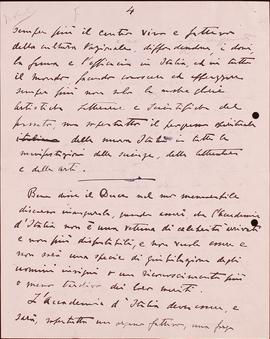 4
sempre più il centro vivo e fattivo
della cultura nazionale, diffondendone i doni,
la forma e l'efficacia in Italia, ed in tutto
il mondo facendo conoscere ed apprezzare
sempre più non solo la nostra gloria
artistica letteraria e scientifica del
passato, ma soprattutto il progresso spirituale
italiano della nuova Italia in tutte le
manifestazioni delle scienze, delle letterature
e delle arti.
Bene disse il Duce nel suo memorabile
discorso inaugurale, quando asserì che l'Accademia
d'Italia non è una vetrina di celebrità arrivate
e non più discutibili, e non vuole essere e
non sarà una specie di giubilazione degli
uomini insigni o un riconoscimento più
o meno tardivo dei loro meriti.
L'Accademia d'Italia deve essere, e
sarà, soprattutto un organo fattivo, una forza